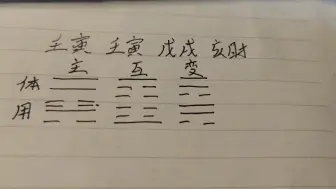 壬寅 壬寅 戊戌 亥时
主 互 变
体
用